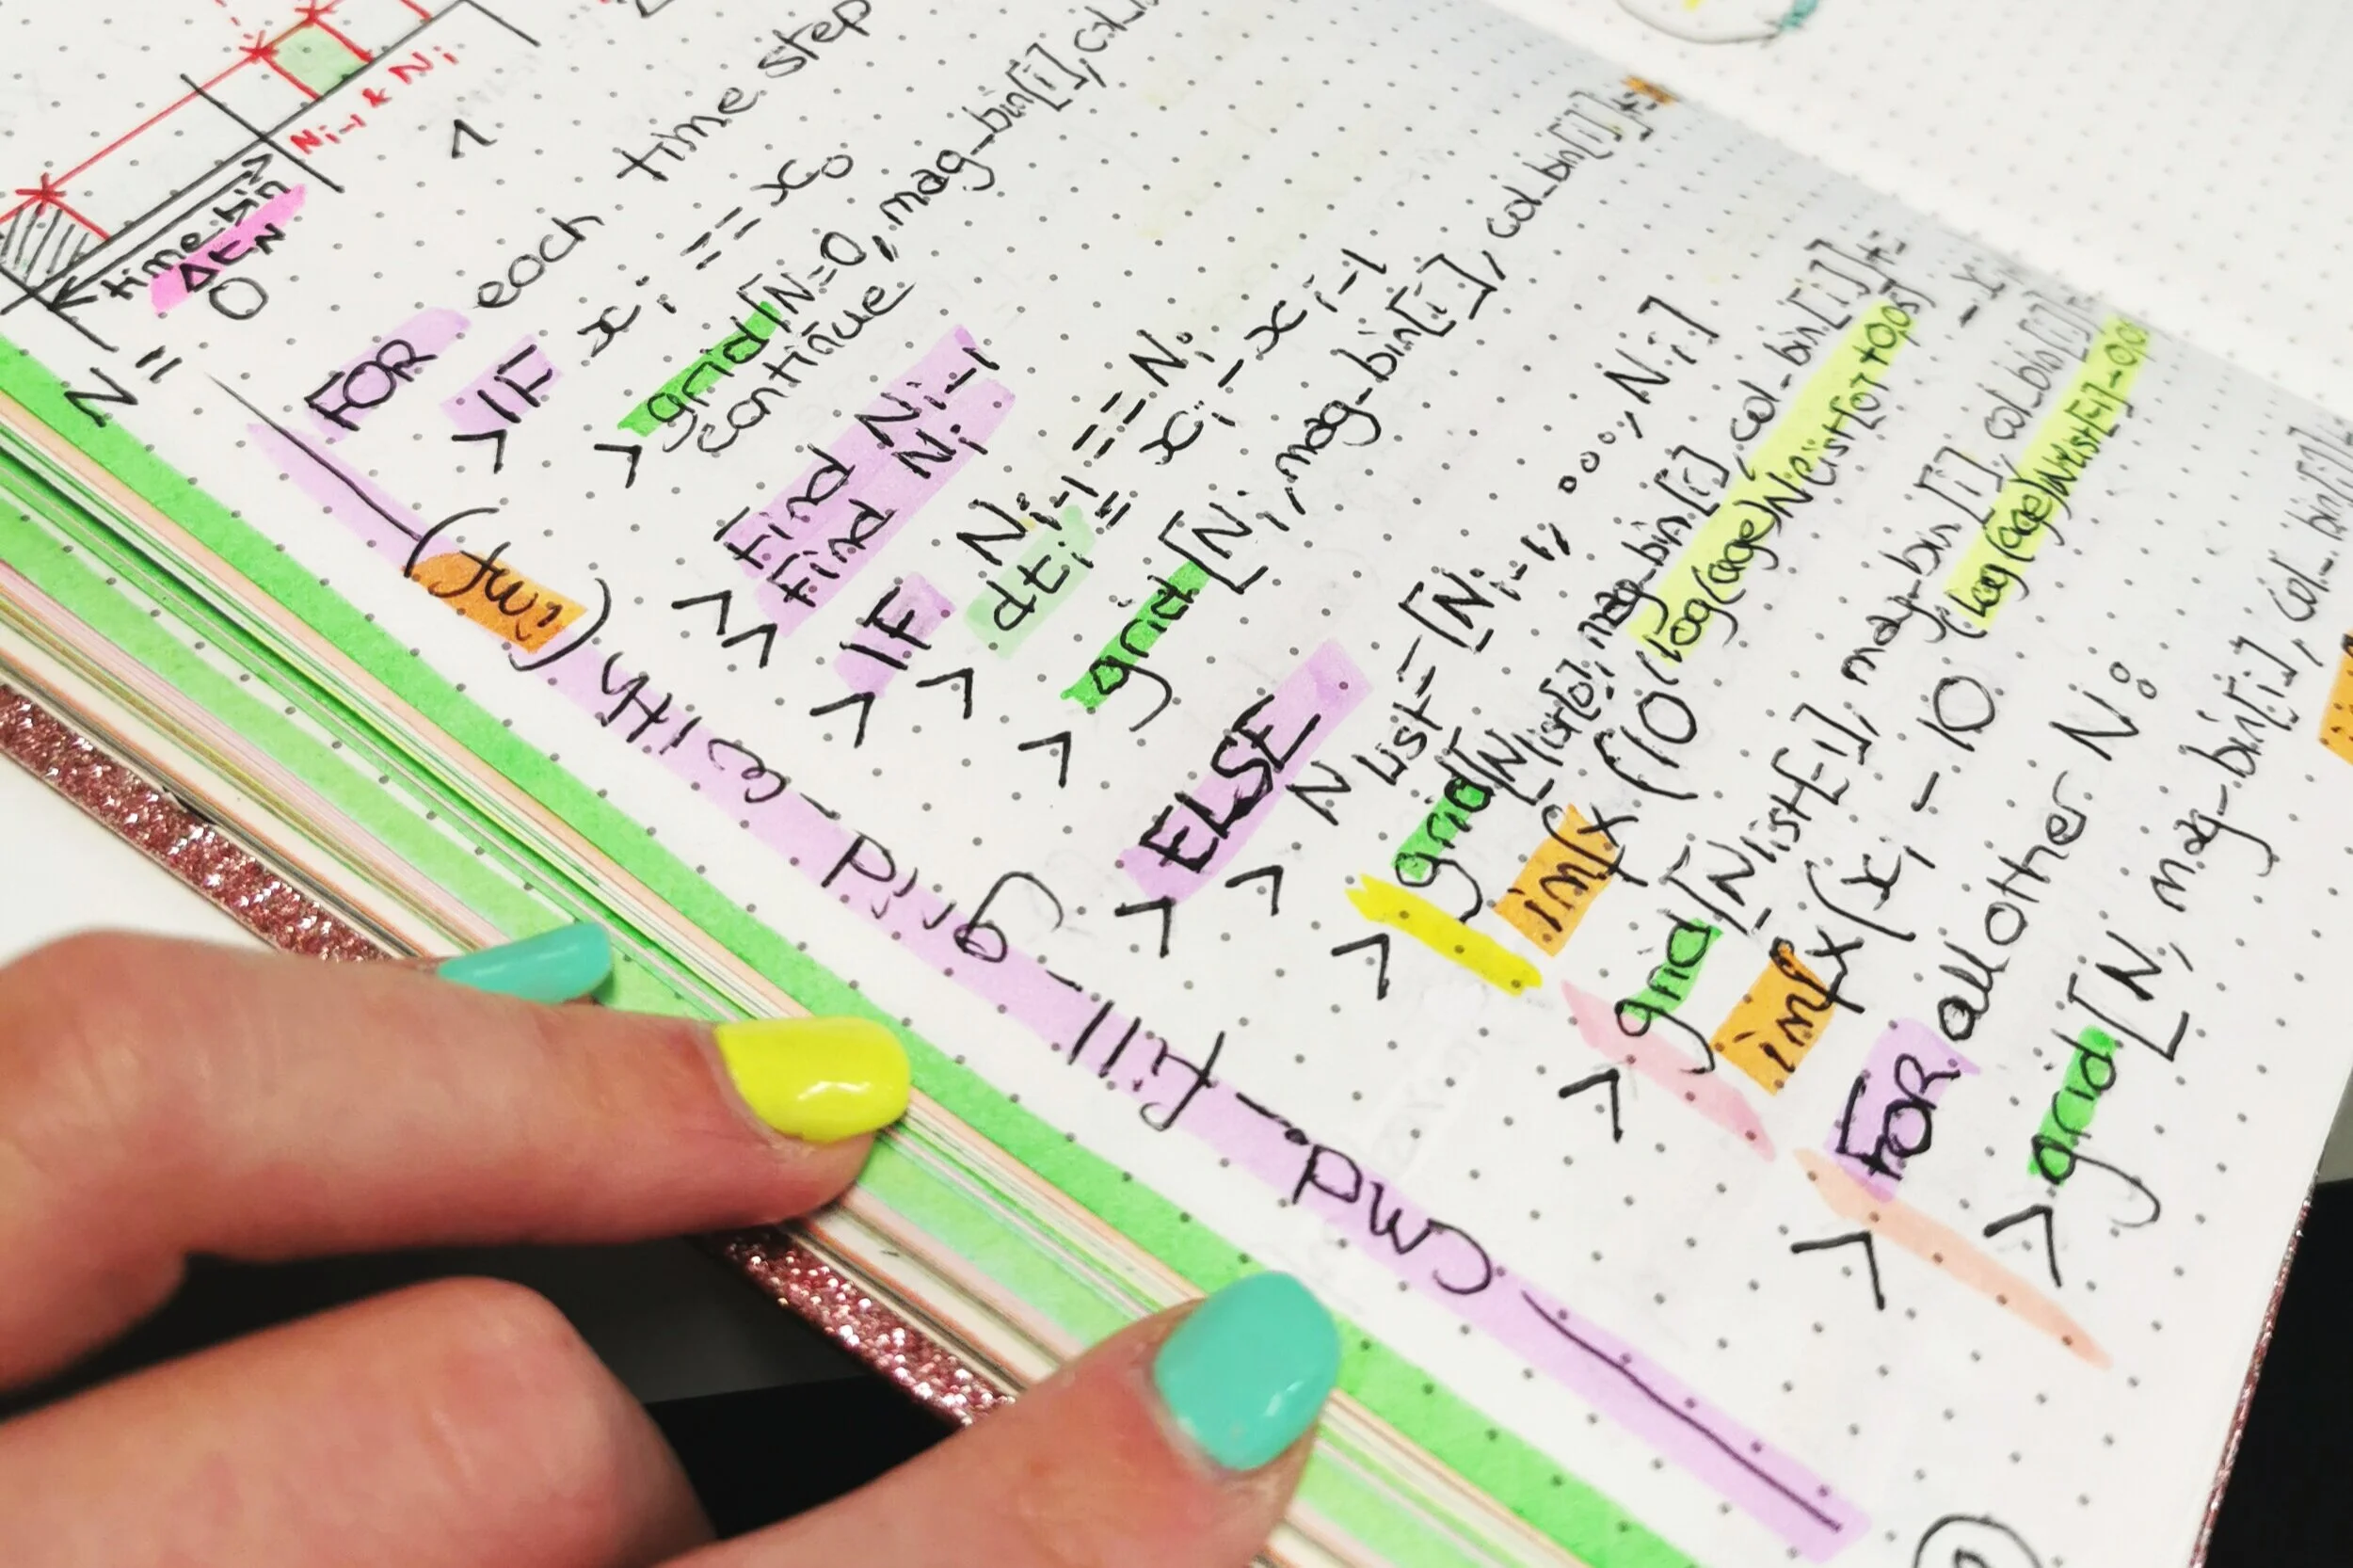 N_{i-1} & N_i
time bin
Δt_N
N = 0 1
FOR each time step
> IF x_i == x_0
> grid[N=0, mag_bin[i], col_
continue
> find N_{i-1}
> find N_i
> IF N_{i-1} == N_i
> dt_i = x_i - x_{i-1}
> grid[N_i, mag_bin[i], col_bin[i]] +=
> ELSE
> N list = [N_{i-1}, ..., N_i]
> grid[N_list[0], mag_bin[i], col_bin[i]] +=
imf x (10^(log(age)N_list[0] + 0.05)
> grid[N_list[-1], mag_bin[i], col_bin[i]]
imf x (x_i - 10^(log(age)N_list[-1] - 0.0
> FOR all other N:
> grid[N, mag_bin[i], col_bin[i]]
cmd - fill - grid - with (imf)